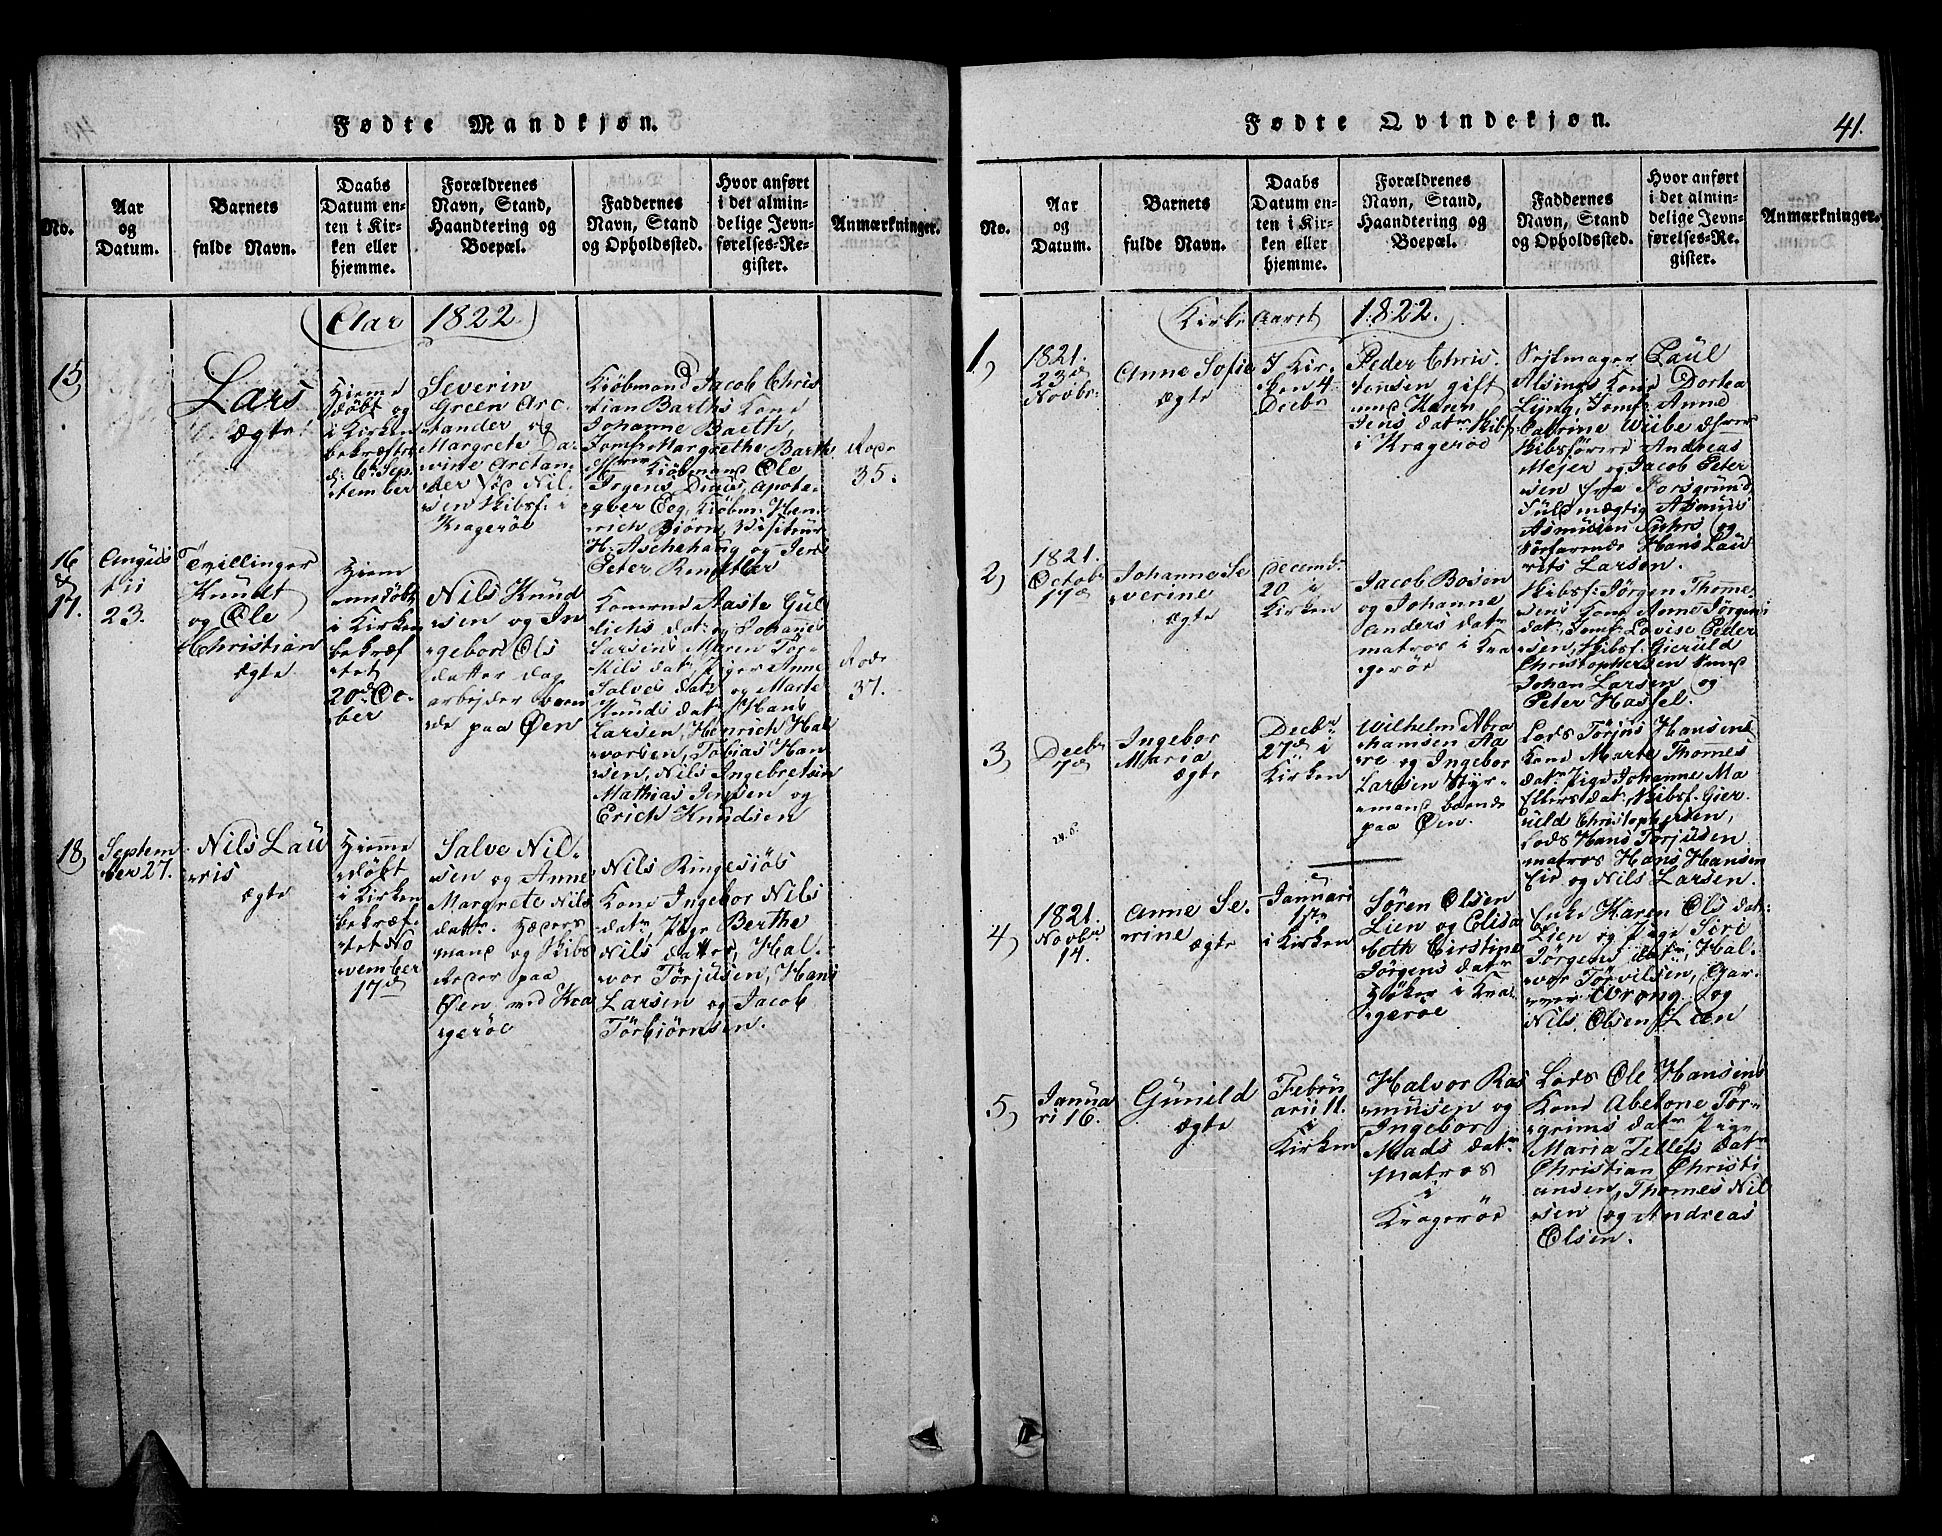 Fødte Mandkjøn.
No.
Aar
og
Datum.
Barnets
fulde Navn.
Daabs
Datum en-
ten i Kir-
ken eller
hjemme.
Forældrenes
Navn, Stand,
Haandtering og
Boepæl.
Faddernes
Navn, Stand
og Opholdssted.
Hvor anført
i det almin-
delige Jevn-
førelses-Re-
gister.
Anmærkninger.
Aar 1822.
15,
Lars
ægte
Hieme
døbt og
i Kirken
bekræftet
d: 6te Sep
tember
Severin
Green Arc
tander og
Margrete Da
vine Arctan
der fød Nil
sen Skibsf: i
Kragerøe
Kiöbmand Jacob Chris
tian Barths Kone
Johanne Barth,
Jomf: Margrethe Barth
Kiöbmand Ole
Jrgens Apothe
gver Eeg, Kiöbm: Hen
rich Biörn, Visiteur
H: Aschehaug og Jens
Peter
35.
16
&
17.
Augus
tii
23.
Tvillinger
Knudt
og Ole
Christian
ægte
Hiem
medöbt
i Kirken
bekræf
tet
20de Oc
ber
Nils Knud
sen og In
gebor Ols
datter dag
arbejder boen
de paa Øen
Konerne Aaste Gul
lichs dat: og Johanne
Larsens Maren Tor
kils datr Piger Anne
Salves datr og Marte
Knuds datr Hans
Larsen, Henrich Hal
vorsen, Tobias Han
sen, Nils Ingebretsen
Mathias Jensen og
Erich Knudsen
37.
18,
Septem
ber 27.
Nils Lau
ris
ægte
Hiemme
döbt
i Kirken
bekræf
tet No
vember
17de
Salve Nil
sen og Anne
Margrete Nils
dattr.
mand og Skibs
paa
Øen ved Kra
gerøe
Nils Ringesiöls
Kone Ingebor Nils
datr, Pige Berthe
Nils datter, Hal
vor Torjusen, Hans
Larsen og Jacob
Torbiörnsen.
Fødte Qvindekjøn.
41.
No.
Aar
og
Datum.
Barnets
fulde Navn.
Daabs
Datum en-
ten i Kir-
ken eller
hjemme.
Forældrenes
Navn, Stand,
Haandtering og
Boepæl.
Faddernes
Navn, Stand
og Opholdssted.
Hvor anført
i det almin-
delige Jevn-
førelses-Re-
gister.
Anmærkninger.
Kirke Aaret 1822.
1,
1821.
23de
Novbr
Anne Sofie
ægte
I Kir
ken 4
Decbr
Peder Chris
tensen gift
med Karen
Jens datr Skibsf
i Kragerøe
Sejlmager Paul
Alsings Kone Dortea
Lyng, Jomf: Anne
Catrine Wibe
Skibsförere Andreas
Mejer og Jacob Peter
sen fra Porsgrund
Fuldmægtig Asmus
Asmusen Suhrs og
Hans Lau
rits Larsen.
2,
1821.
Octobr
17de
Johanne Se
verine
ægte
Decemb:
20 i
Kirken
Jacob Bosen
og Johanne
Anders datr
matros i Kra
gerøe
Skibsf: Jørgen Thome
sens Kone Anne Jørgens
dat, Jomf: Lovise Peder
sen, Skibsf: Gieruld
Christophersen
Johan Larsen og
Peter Hassel.
3,
Decbr
7de
Ingebor
Maria
ægte
Decbr
27de i
Kirken
Wilhelm Abra
hamsen Aa
re og Ingebor
Larsen Styr
mand boende
paa Øen.
Lods Torjus Hansens
Kone Marte Thomes
datr Pige Johanne Ma
Ellers dat, Skibsf: Gier
uld Christophersen,
Lods Hans Torjusen
matros Hans Hansen
Eie og Nils Larsen.
4,
1821.
Novbr
14.
Anne Se
rine
ægte
Januari
1ste
i Kirken
Søren Olsen
Lien og Elisa
beth Kirstine
Jörgens datr
Höker i Kra
gerøe
Enke Karen Ols dat:
Lien og Pige Siri
Jörgens datr, Hal
vor Torvilsen, Gar
ver Wrong og
Nils Olsen Lien
5,
Janua
ri 16.
Gunild
ægte
Febru
arii 11.
i
Kirken
Halvor Ras
musen og
Ingebor
Mads datr
matros
i
Kragerøe
Lods Ole Hansens
Kone Abelone Tor
grims datr Pige
Maria Tellefs datr
Christian Christi
ansen, Thomes Nil
sen og Andreas
Olsen.